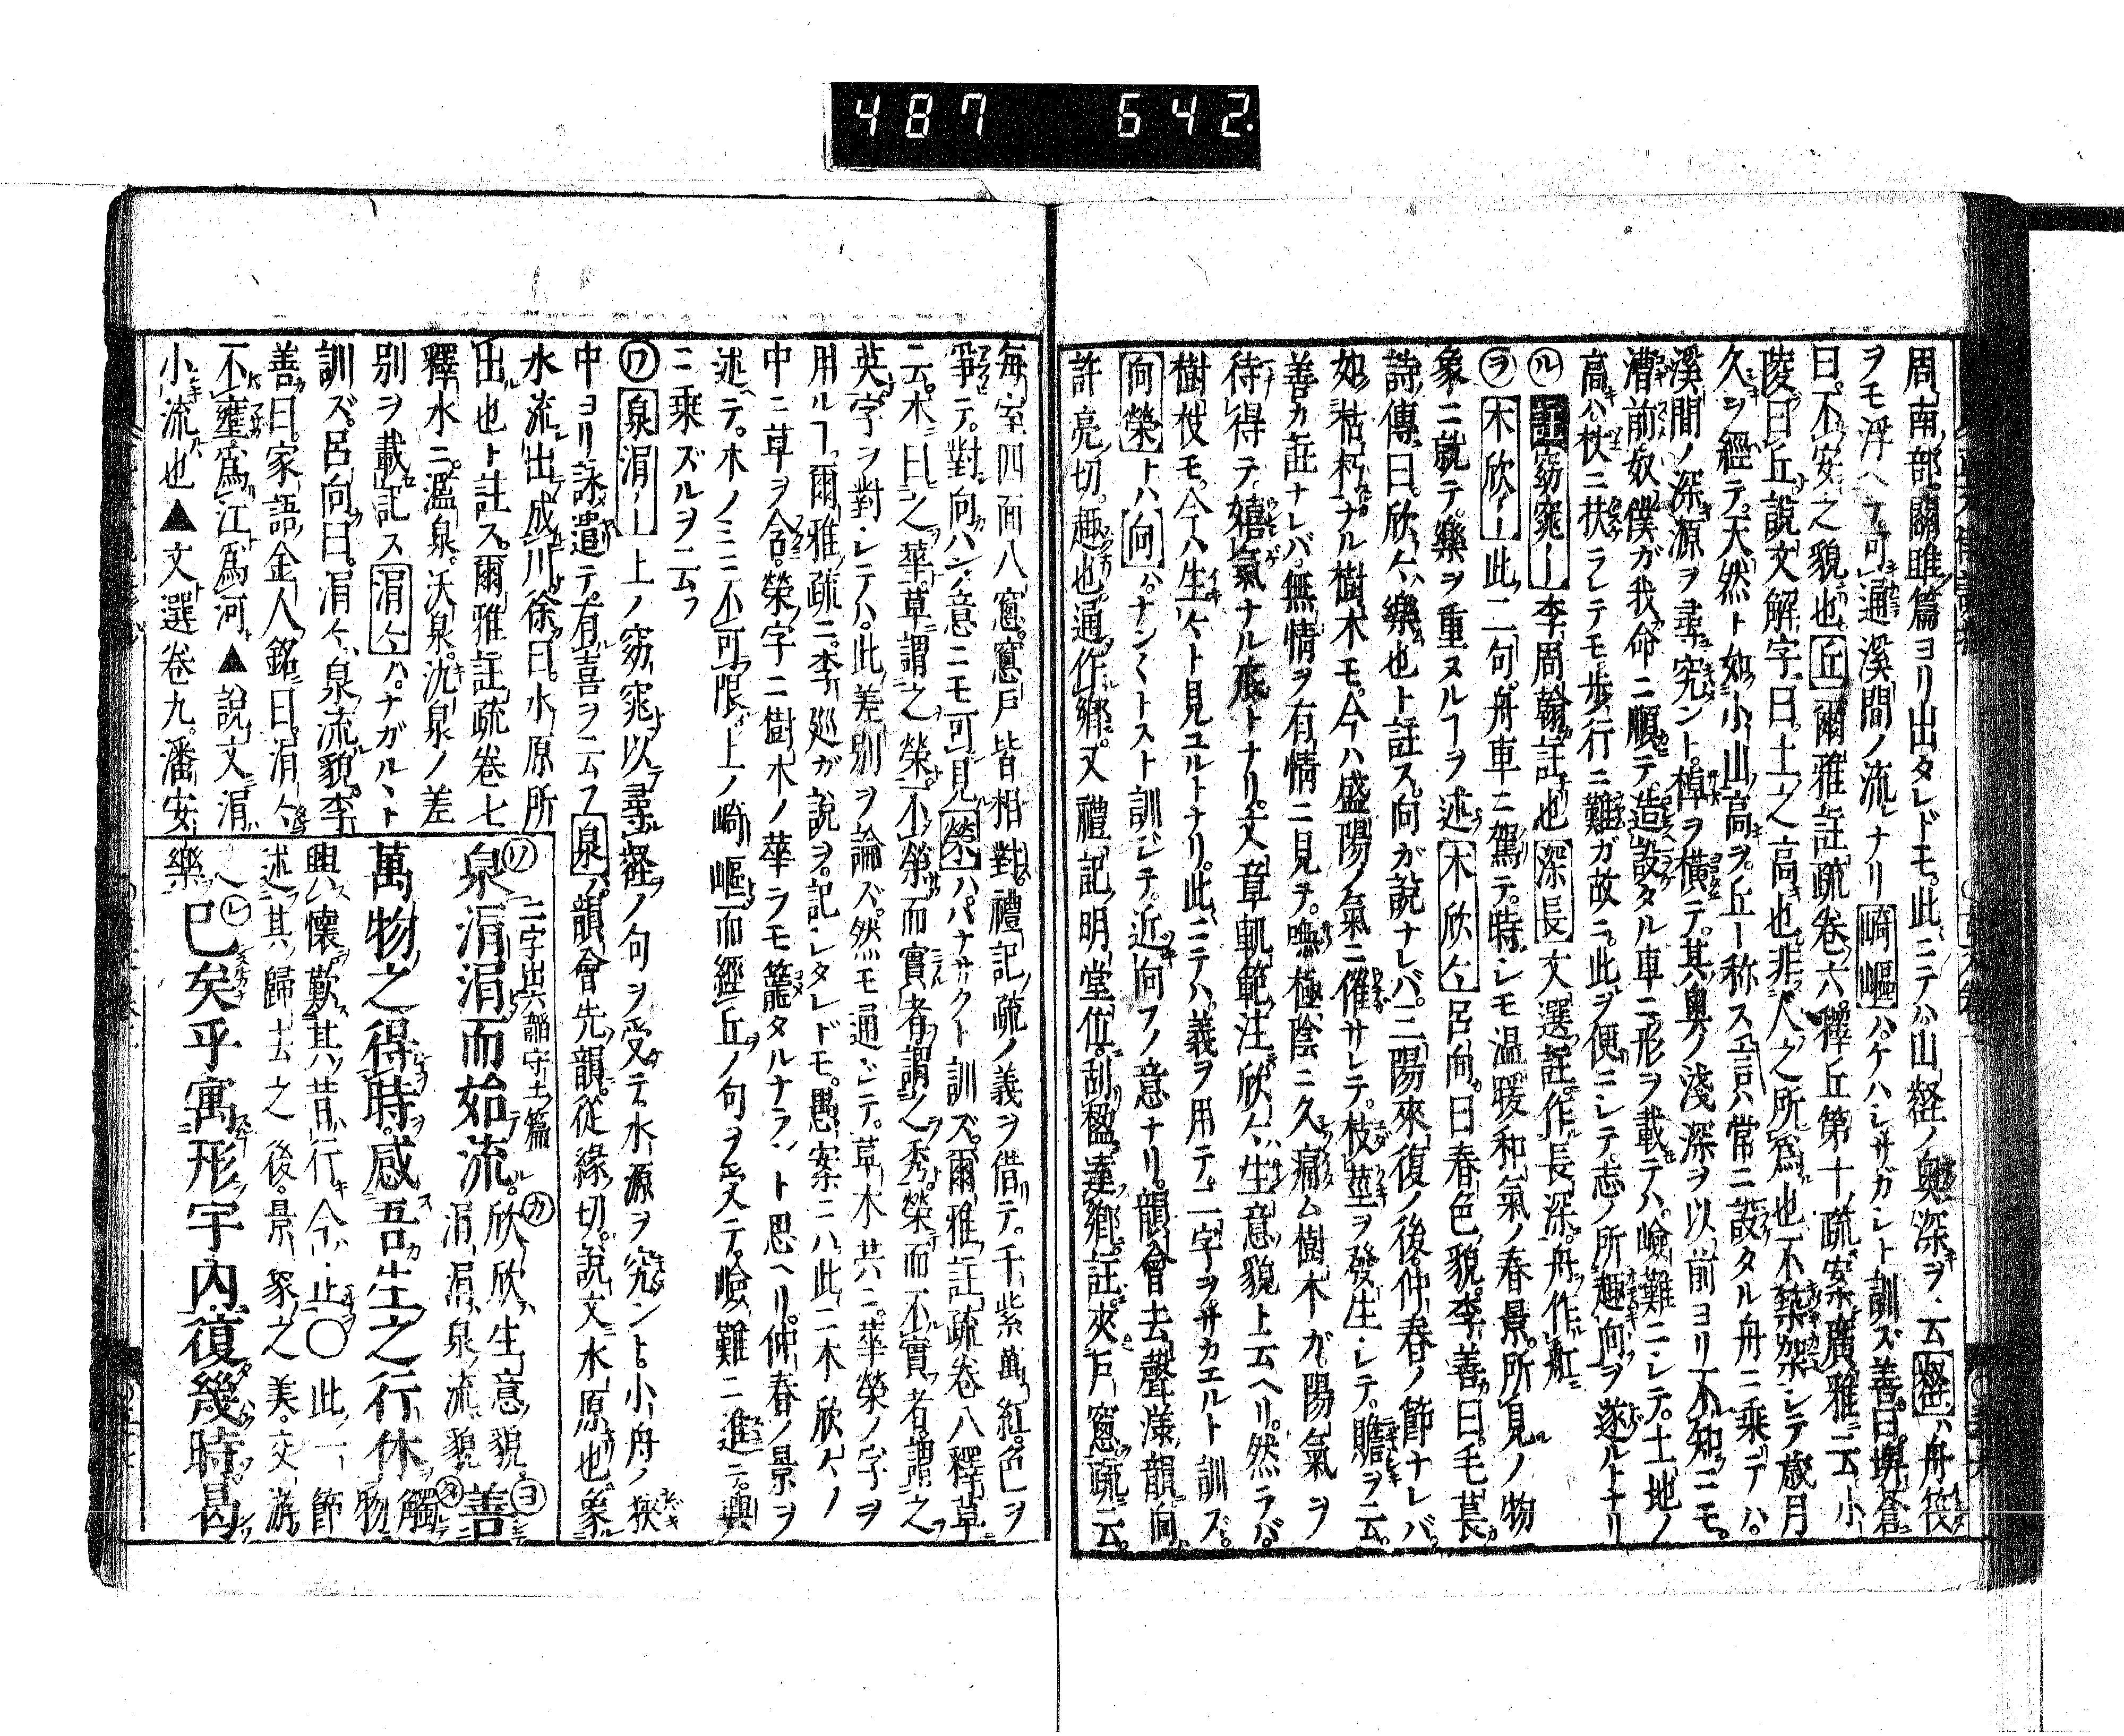 487 642.
周南部關雎篇ヨリ出タレドモ。此ニテハ山壑ノ奥深ヲ云壑ハ舟筏
ヲモ浮ヘ可通溪間ノ流ナリ崎嶇ハケハシサガシト訓ズ善曰埤倉
曰。不安之貌也丘爾雅註疏卷六釋丘第十疏案廣雅ニ云小
陵曰丘說文解字曰。土之高也非人之所爲也不築架シテ歳月
久シヲ經テ天然ト如小山高ヲ丘ト称ス言ハ常ニ設タル舟ニ乗テハ。
溪間ノ深源ヲ尋究ント。棹ヲ横テ。其奥ノ淺深ヲ以前ヨリ不知ニモ。
漕前奴僕ガ我命ニ順テ造設タル車ニ形ヲ載テハ。嶮難ニシテ。土地ノ
高ハ杖ニ扶ラレテモ歩行ニ難ガ故ニ。此ヲ便ニシテ志ノ所趣向ヲ遂ルトナリ
ル 窈窕ー李周翰註也深長文選註作長深。舟作舡
ヲ 木欣ー此二句。舟車ニ駕テ。時シモ温暖和氣ノ春景。所見ノ物
象ニ就テ。樂ヲ重ヌルヿヲ述木欣々呂向。曰春色貌。李善曰。毛萇
詩傳曰。欣々樂也ト註ス。向ガ說ナレバ。三陽來復ノ後。仲春ノ節ナレバ
如枯朽ナル樹木モ。今ハ盛陽ノ氣ニ催サレテ。枝莖ヲ發生シテ。贍ヲ云。
善カ註ナレバ。無情ヲ有情ニ見テ。極陰ニ久痛ム樹木ガ。陽氣ヲ
待得テ。嬉氣ナル底トナリ。文章軌範注欣々生意貌ト云ヘリ。然ラバ。
樹枝モ。今ハ生々ト見ユルトナリ。此ニテハ。義ヲ用テ。二字ヲサカエルト訓ズ。
向榮トハ向ハ。ナンナントスト訓ジテ。近向フノ意ナリ。韻會去聲漾韻向
許亮切。趣也。通作鄕。又禮記明堂位。刮楹達鄕。註夾戶窻疏云。
每室四面八窻。窻戶皆相對。禮記疏ノ義ヲ借テ。千紫萬紅。色ヲ
爭テ。對向ハンノ意ニモ可見榮ハハナサクト訓ズ。爾雅註疏卷八釋草
云。木曰之華。草謂之榮。不榮而實者謂之秀。榮而不實者謂之
英字ヲ對シテハ。此差別ヲ論ズ。然モ通ジテ。草木共ニ。華榮ノ字ヲ
用ルヿ爾雅疏ニ。李廵ガ說ヲ。記シタレドモ。愚案ニハ。此二木欣々ノ
中ニ草ヲ含。榮字ニ樹木ノ華ラモ籠タルナラント思ヘリ。仲春ノ景ヲ
述テ。木ノミニ不可限。上ノ崎嶇而經丘ノ句ヲ受テ。嶮難ニ進ニ。興
ニ乗ズルヲ云フ
ワ 泉涓ー上ノ窈窕以尋壑ノ句ヲ受テ。水源ヲ究ント。小舟ノ狹
中ヨリ詠遣テ。有喜ヲ云フ泉韻會先韻。從緣切。說文水原也象
水流出成川徐曰。水原所
出也ト註ス。爾雅註疏卷七
釋水ニ。濫泉。沃泉。氿泉ノ差
別ヲ載記ス涓々ハ。ナガルヽト
訓ズ。呂向曰。涓々。泉流貌。李
善曰。家語金人銘曰。涓々
不壅。爲江爲河▲說文涓
小流也▲文選卷九。潘安
ワ 二字出大誥守土篇
泉涓涓而始流。欣欣。生意貌 涓涓。泉流貌 ヨ 善
萬物之得時。感吾生之行休 觸物
興懷歎其昔行今止〇此一節
述其歸去之後。景象之美。交游
之樂レ 已矣乎寓形宇內復幾時曷